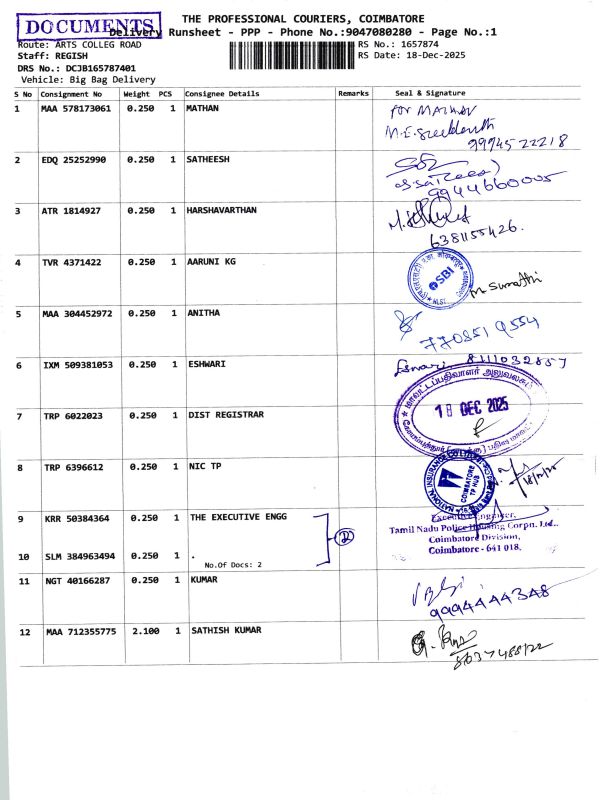 DOCUMENTS
THE PROFESSIONAL COURIERS, COIMBATORE
Delivery Runsheet - PPP - Phone No.:9047080280 - Page No.:1
Route: ARTS COLLEG ROAD
RS No.: 1657874
Staff: REGISH
RS Date: 18-Dec-2025
DRS No.: DCJB165787401
Vehicle: Big Bag Delivery
S No Consignment No Weight PCS Consignee Details Remarks Seal & Signature
1 MAA 578173061 0.250 1 MATHAN
for
9994522218
2 EDQ 25252990 0.250 1 SATHEESH
9944660005
3 ATR 1814927 0.250 1 HARSHAVARTHAN
6381155426.
4 TVR 4371422 0.250 1 AARUNI KG
SBI
m Sumathi
5 MAA 304452972 0.250 1 ANITHA
7708519554
6 IXM 509381053 0.250 1 ESHWARI
Eswari 8111032857
7 TRP 6022023 0.250 1 DIST REGISTRAR
மாவட்டப்பதிவாளர் அலுவலகம்
18 DEC 2025
8 TRP 6396612 0.250 1 NIC TP
COIMBATORE
TP HUB
9 KRR 50384364 0.250 1 THE EXECUTIVE ENGG
2
Executive Engineer,
Tamil Nadu Police Housing Corpn. Ltd.,
Coimbatore Division,
Coimbatore - 641 018.
10 SLM 384963494 0.250 1 .
No.Of Docs: 2
11 NGT 40166287 0.250 1 KUMAR
9994444348
12 MAA 712355775 2.100 1 SATHISH KUMAR